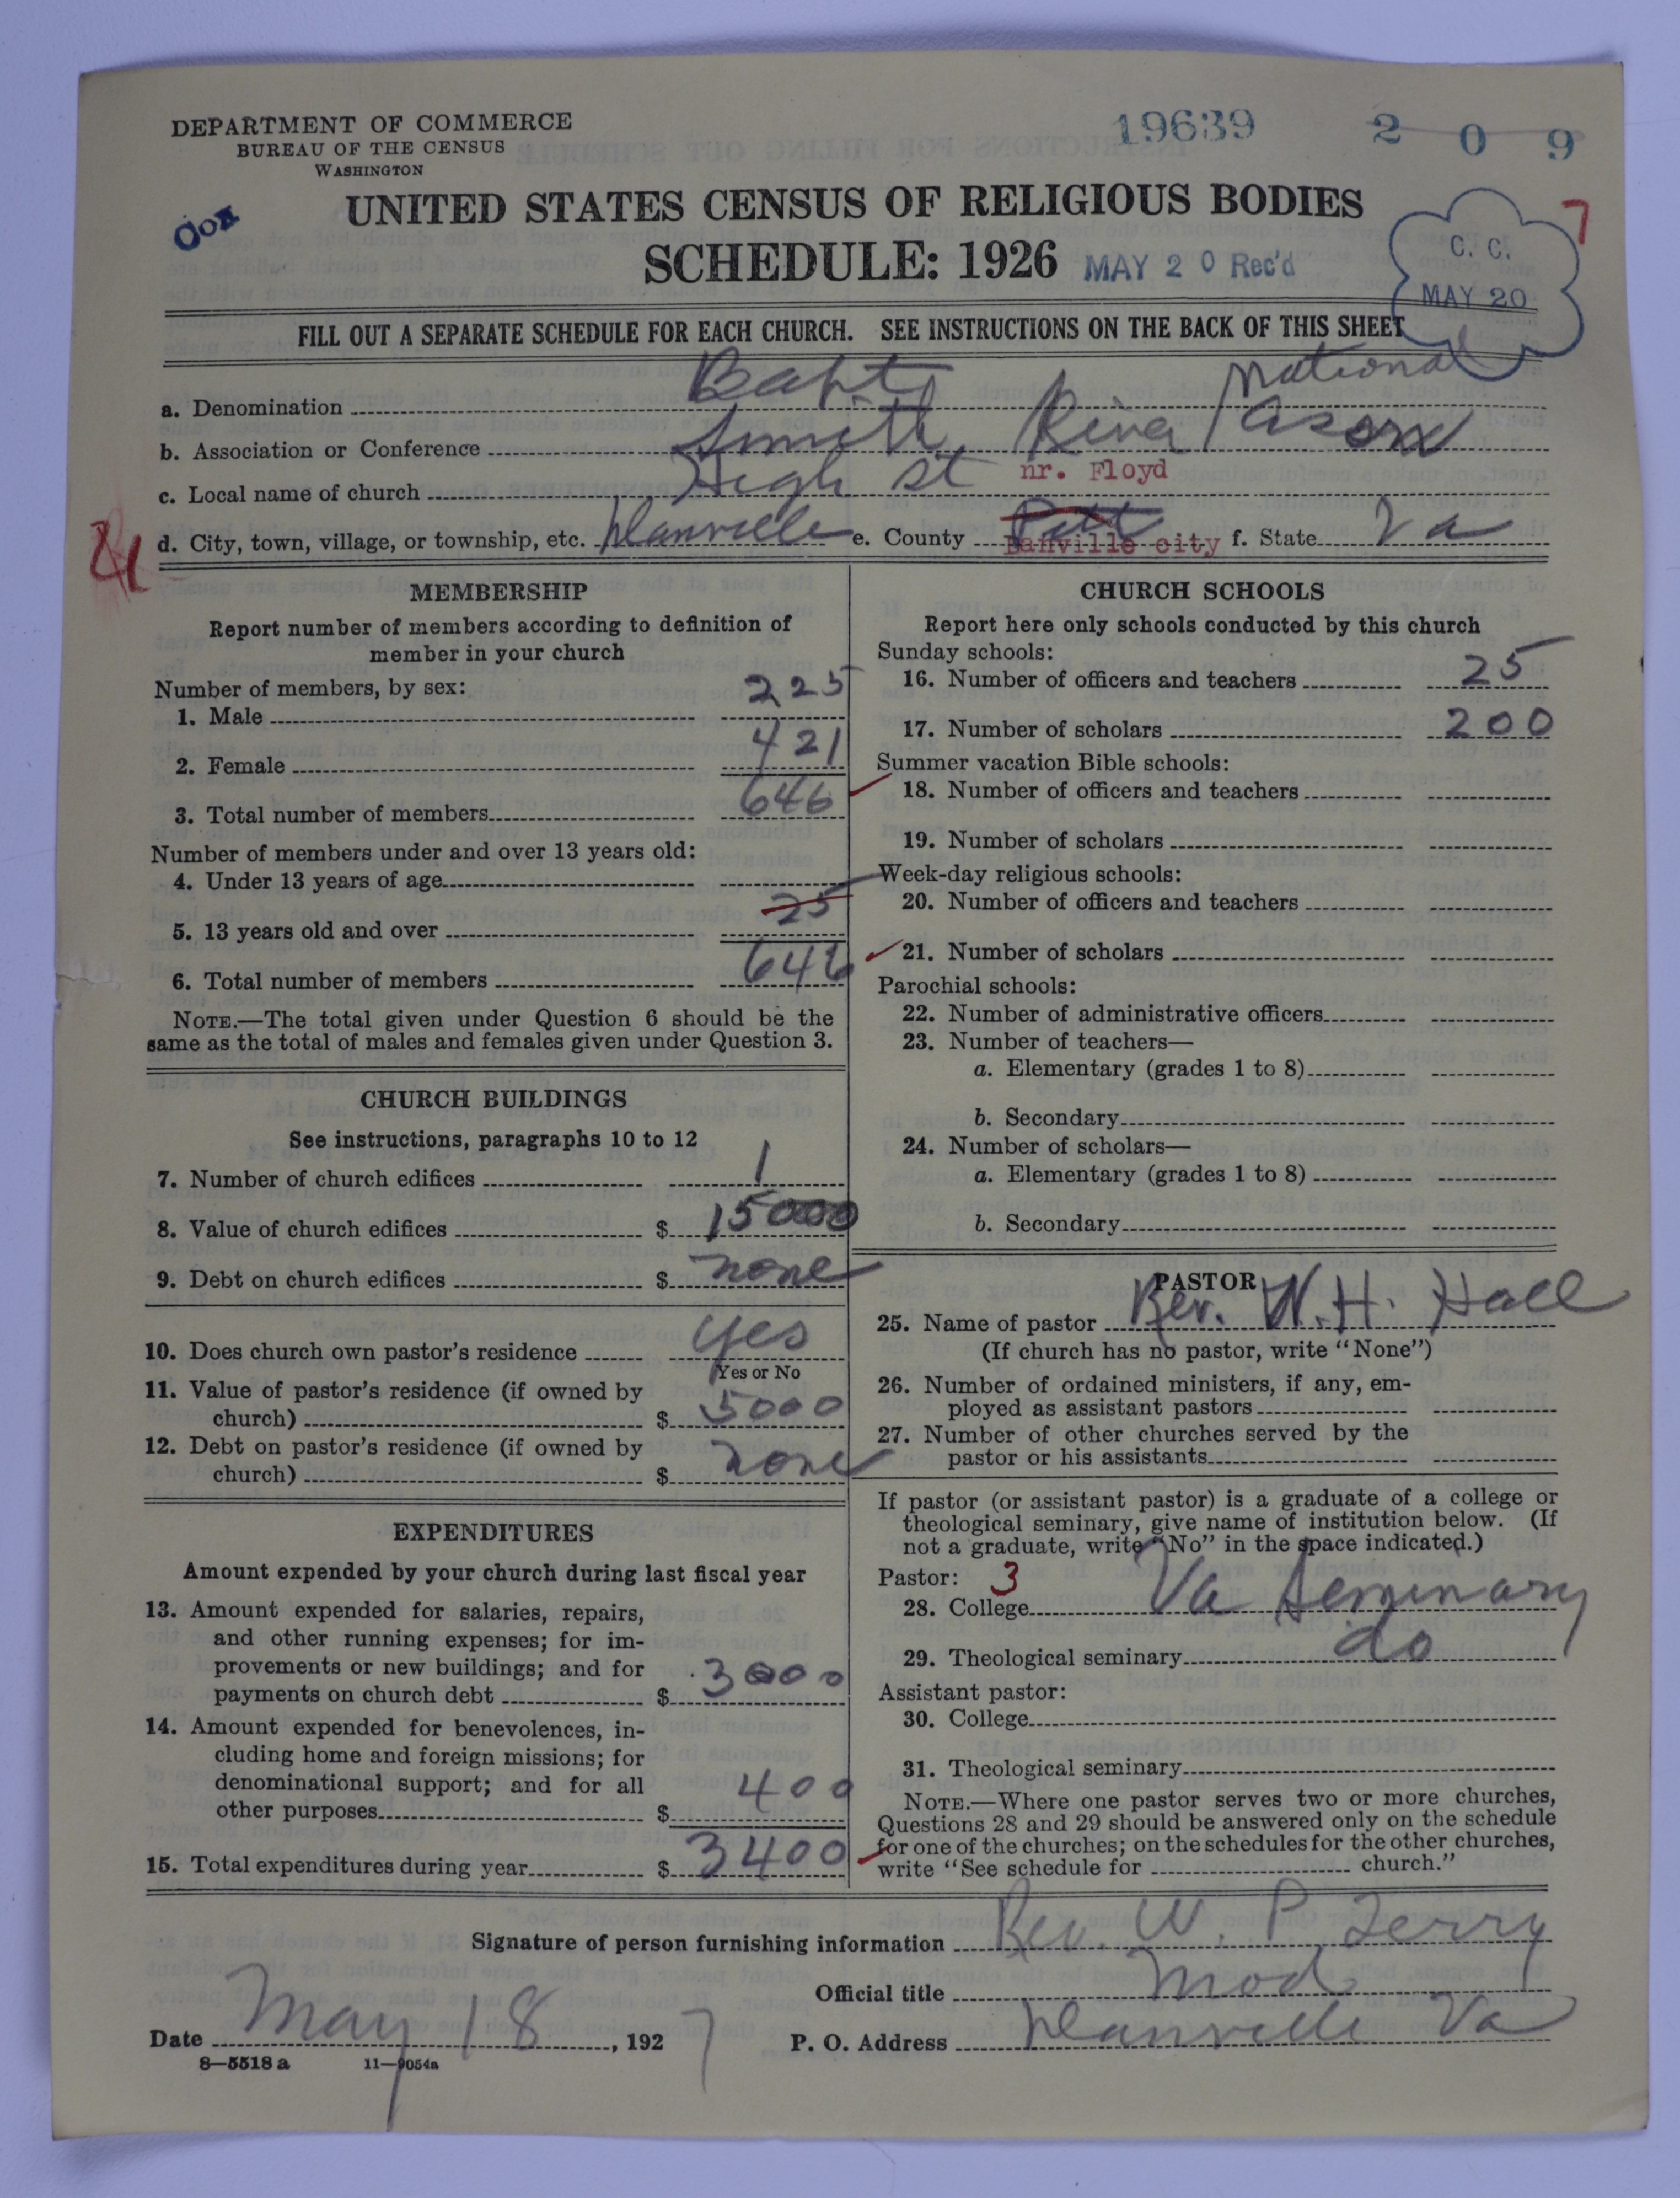 DEPARTMENT OF COMMERCE
BUREAU OF THE CENSUS
WASHINGTON
19639 2 0 9
UNITED STATES CENSUS OF RELIGIOUS BODIES
SCHEDULE: 1926 MAY 20 Rec'd
C. C.
MAY 20
7
FILL OUT A SEPARATE SCHEDULE FOR EACH CHURCH. SEE INSTRUCTIONS ON THE BACK OF THIS SHEET
a. Denomination Bapt. National
b. Association or Conference Smith River Ason
c. Local name of church High St nr. Floyd
d. City, town, village, or township, etc. Danville e. County Pitt Danville city f. State Va
MEMBERSHIP
Report number of members according to definition of
member in your church
Number of members, by sex:
1. Male 225
2. Female 421
3. Total number of members 646
Number of members under and over 13 years old:
4. Under 13 years of age
5. 13 years old and over 25
6. Total number of members 646
NOTE.—The total given under Question 6 should be the
same as the total of males and females given under Question 3.
CHURCH BUILDINGS
See instructions, paragraphs 10 to 12
7. Number of church edifices 1
8. Value of church edifices $ 15000
9. Debt on church edifices $ none
10. Does church own pastor's residence yes
Yes or No
11. Value of pastor's residence (if owned by
church) $ 5000
12. Debt on pastor's residence (if owned by
church) $ none
EXPENDITURES
Amount expended by your church during last fiscal year
13. Amount expended for salaries, repairs,
and other running expenses; for im-
provements or new buildings; and for
payments on church debt $ 3000
14. Amount expended for benevolences, in-
cluding home and foreign missions; for
denominational support; and for all
other purposes $ 400
15. Total expenditures during year $ 3400
CHURCH SCHOOLS
Report here only schools conducted by this church
Sunday schools:
16. Number of officers and teachers 25
17. Number of scholars 200
Summer vacation Bible schools:
18. Number of officers and teachers
19. Number of scholars
Week-day religious schools:
20. Number of officers and teachers
21. Number of scholars
Parochial schools:
22. Number of administrative officers
23. Number of teachers—
a. Elementary (grades 1 to 8)
b. Secondary
24. Number of scholars—
a. Elementary (grades 1 to 8)
b. Secondary
PASTOR
25. Name of pastor Rev. W. H. Hall
(If church has no pastor, write "None")
26. Number of ordained ministers, if any, em-
ployed as assistant pastors
27. Number of other churches served by the
pastor or his assistants
If pastor (or assistant pastor) is a graduate of a college or
theological seminary, give name of institution below. (If
not a graduate, write "No" in the space indicated.)
Pastor: 3
28. College Va Seminary
29. Theological seminary do
Assistant pastor:
30. College
31. Theological seminary
NOTE.—Where one pastor serves two or more churches,
Questions 28 and 29 should be answered only on the schedule
for one of the churches; on the schedules for the other churches,
write "See schedule for church."
Signature of person furnishing information Rev. W. P. Terry
Official title Mod
Date May 18, 1927 P. O. Address Danville Va
8—5518 a 11—9054a